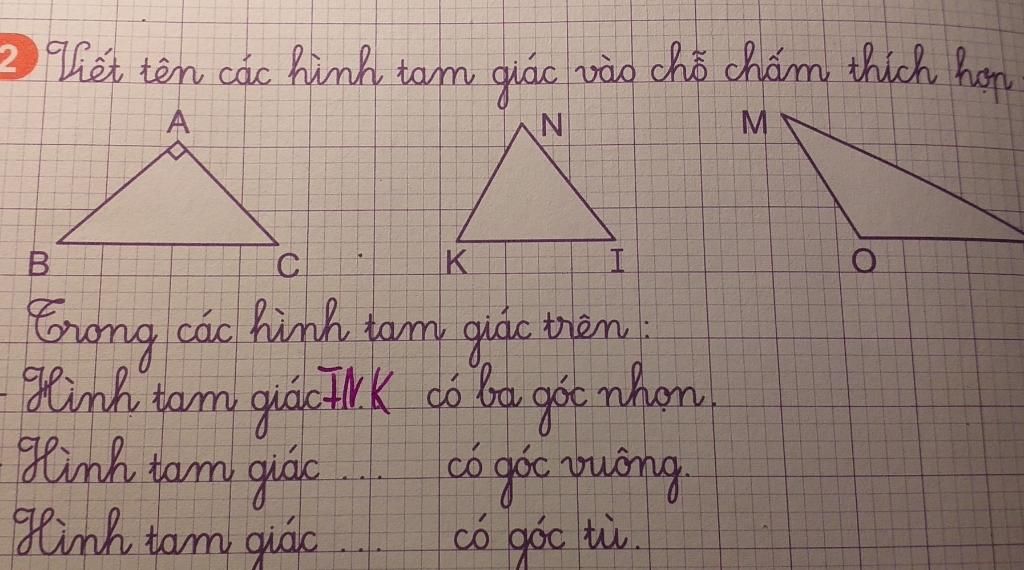 2 Viết tên các hình tam giác vào chỗ chấm thích hợp
A
N
M
B
C
K
I
O
Trong các hình tam giác trên:
- Hình tam giác INK có ba góc nhọn.
- Hình tam giác ... có góc vuông.
Hình tam giác ... có góc tù.